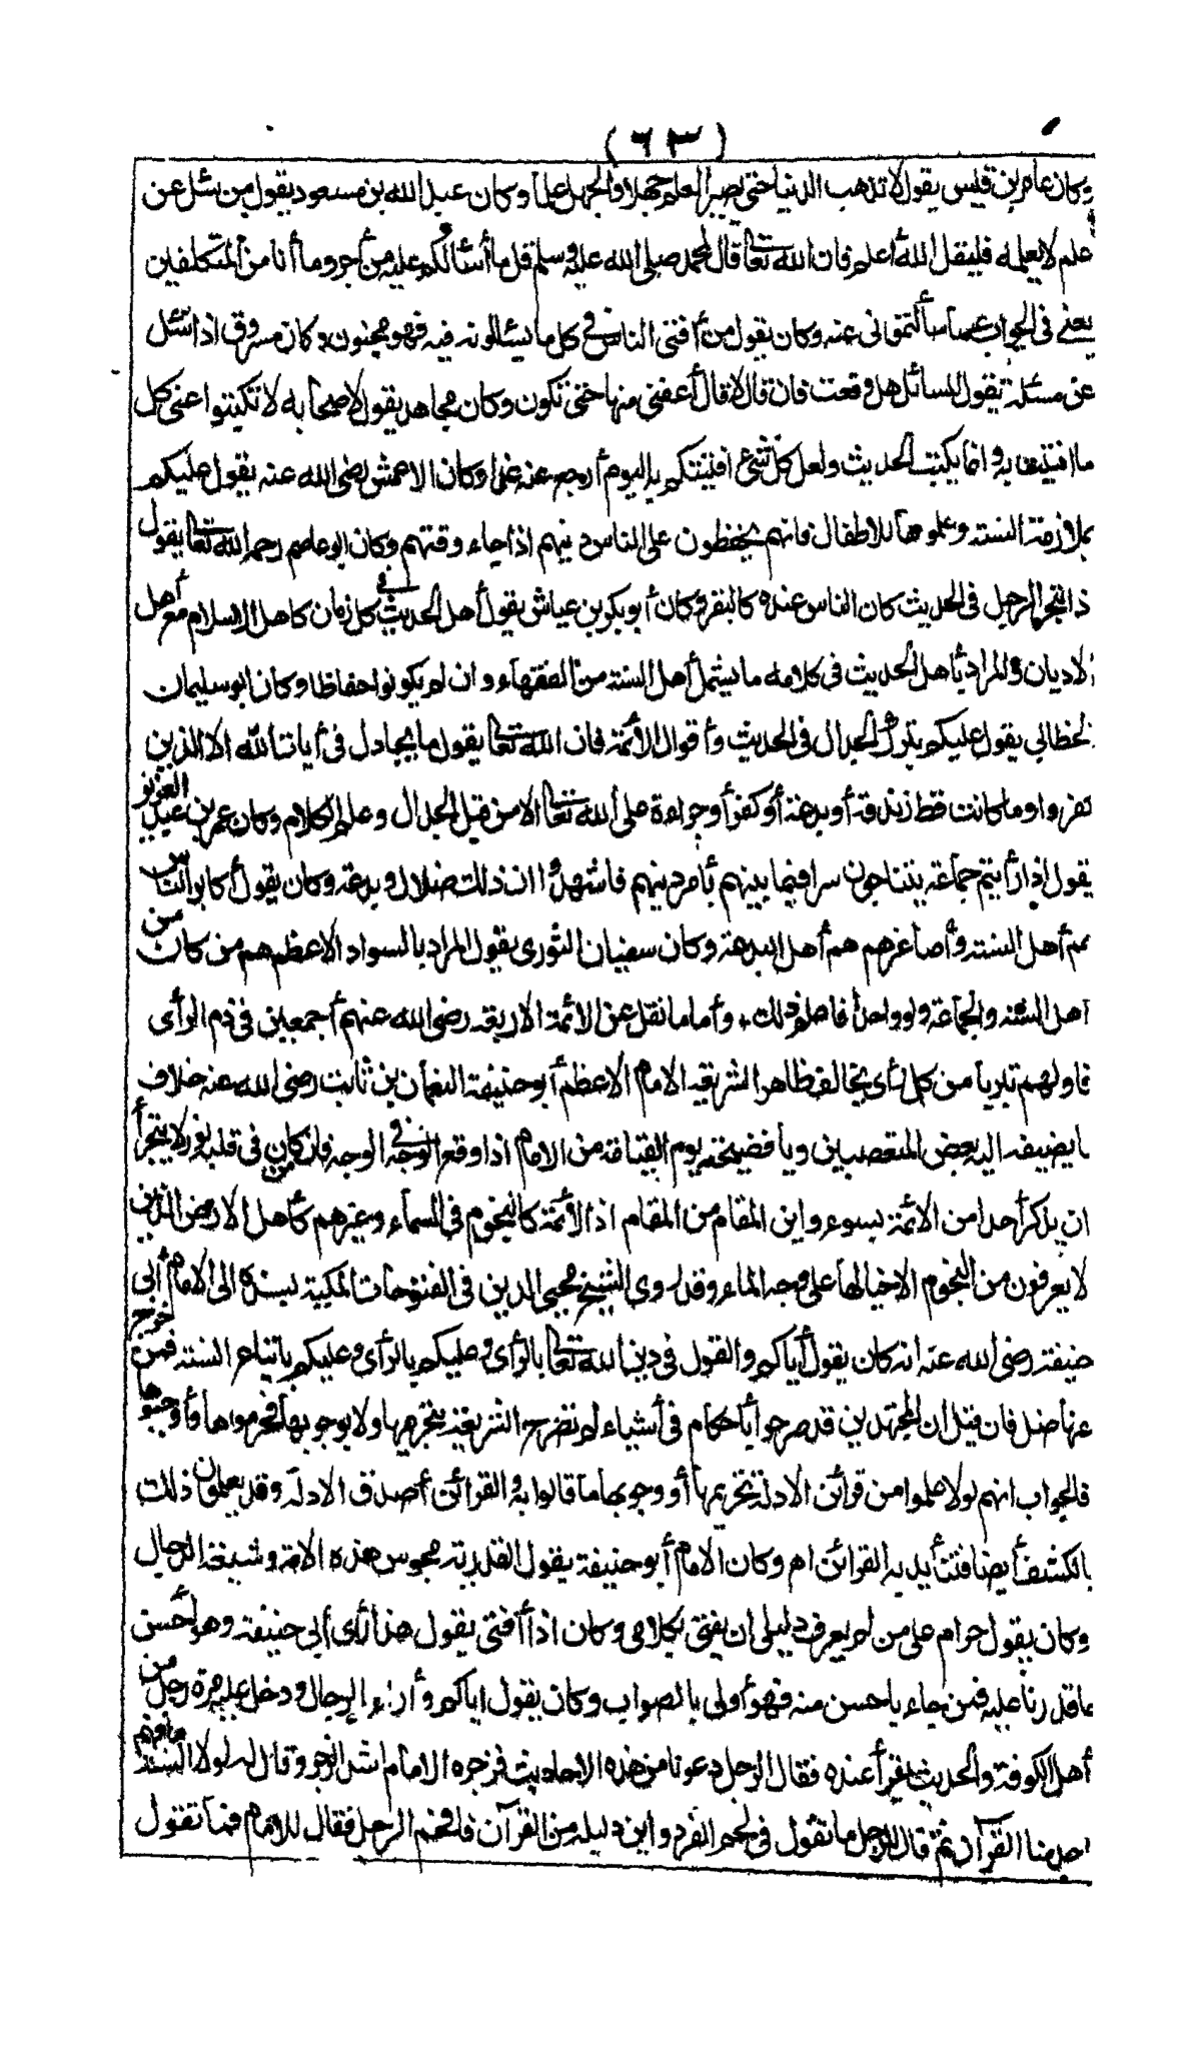 (٦٣)
وكان عامر بن قيس يقول لا تذهب الدنيا حتى يصير العلم جهلا والجهل علما وكان عبد الله بن مسعود يقول من سئل عن
علم لا يعلمه فليقل الله اعلم فان الله تعالى قال لمحمد صلى الله عليه وسلم قل ما أسئالكم عليه من أجر وما أنا من المتكلفين
يعنى فى الجواب عما سألتمونى عنه وكان يقول من أفتى الناس فى كل ما يسئالونه فيه فهو مجنون وكان مسروق اذا سئل
عن مسئلة يقول للسائل هل وقعت فان قال لا قال أعفنى منها حتى تكون وكان مجاهد يقول لاصحابه لا تكتبوا عنى كل
ما افتيت به وانما يكتب الحديث ولعل كل شئ افتيتكم به اليوم أرجع عنه غدا وكان الاعمش رضى الله عنه يقول عليكم
بملازمة السنة وعلموها للاطفال فانهم يحفظون على الناس دينهم اذا جاء وقتهم وكان ابو عاصم رحمه الله تعالى يقول
ذا تبحر الرجل فى الحديث كان الناس عنده كالبقر وكان أبو بكر بن عياش يقول أهل الحديث فى كل زمان كاهل الاسلام مع أهل
الاديان والمراد باهل الحديث فى كلامه ما يشمل أهل السنة من الفقهاء وان لم يكونوا حفاظا وكان ابو سليمان
لخطابى يقول عليكم بترك الجدال فى الحديث وأقوال الأئمة فان الله تعالى يقول ما يجادل فى أيات الله الا الذين
كفروا وما كانت قط زندقة أو بدعة أو كفر أو جراءة على الله تعالى الا من قبل الجدال وعلم الكلام وكان عمر بن عبد العزيز
يقول اذا رأيتم جماعة يتناجون سرا فيما بينهم بأمر دينهم فاشهدوا ان ذلك ضلال وبدعة وكان يقول أكابر الناس
هم أهل السنة وأصاغرهم هم أهل البدعة وكان سفيان الثورى يقول المراد بالسواد الاعظم هم من كان من
اهل السنة والجماعة ولو واحدا فاعلم ذلك وأما ما نقل عن الائمة الاربعة رضى الله عنهم أجمعين فى ذم الرأى
فاولهم تبريا من كل رأى يخالف ظاهر الشريعة الامام الاعظم أبو حنيفة النعمان بن ثابت رضى الله عنه خلاف
ما يضيفه اليه بعض المتعصبين ويا فضيحته يوم القيامة من الامام اذا وقع الوجه فى الوجه فان من كان فى قلبه نور لا يتجرأ
ان يذكر أحدا من الائمة بسوء واين المقام من المقام اذ الأئمة كالنجوم فى السماء وغيرهم كأهل الارض الذين
لا يعرفون من النجوم الا خيالها على وجه الماء وقد روى الشيخ محيى الدين فى الفتوحات المكية بسنده الى الامام أبى
حنيفة رضى الله عنه انه كان يقول أياكم والقول فى دين الله تعالى بالرأى وعليكم بالرأى وعليكم باتباع السنة فمن خرج
عنها ضل فان قيل ان المجتهدين قد صرحوا بأحكام فى أشياء لم تصرح الشريعة بتحريمها ولا بوجوبها فحرموها وأوجبوها
فالجواب انهم لولا علموا من قرائن الادلة تحريمها أو وجوبها ما قالوا به والقرائن أصدق الادلة وقد يعلمون ذلك
بالكشف أيضا فتتأيد به القرائن اه وكان الامام أبو حنيفة يقول القدرية مجوس هذه الامة وشيعة الدجال
وكان يقول حرام على من لم يعرف دليلى ان يفتى بكلامى وكان اذا أفتى يقول هذا رأى أبى حنيفة وهو أحسن
ما قدرنا عليه فمن جاء باحسن منه فهو أولى بالصواب وكان يقول اياكم وأراء الرجال ودخل عليه مرة رجل من
أهل الكوفة والحديث يقرأ عنده فقال الرجل دعونا من هذه الاحاديث فزجره الامام اشد الزجر وقال له لولا السنة ما فهم
احد منا القرآن ثم قال للرجل ما تقول فى لحم القرد واين دليله من القرآن فافحم الرجل فقال للامام فما تقول